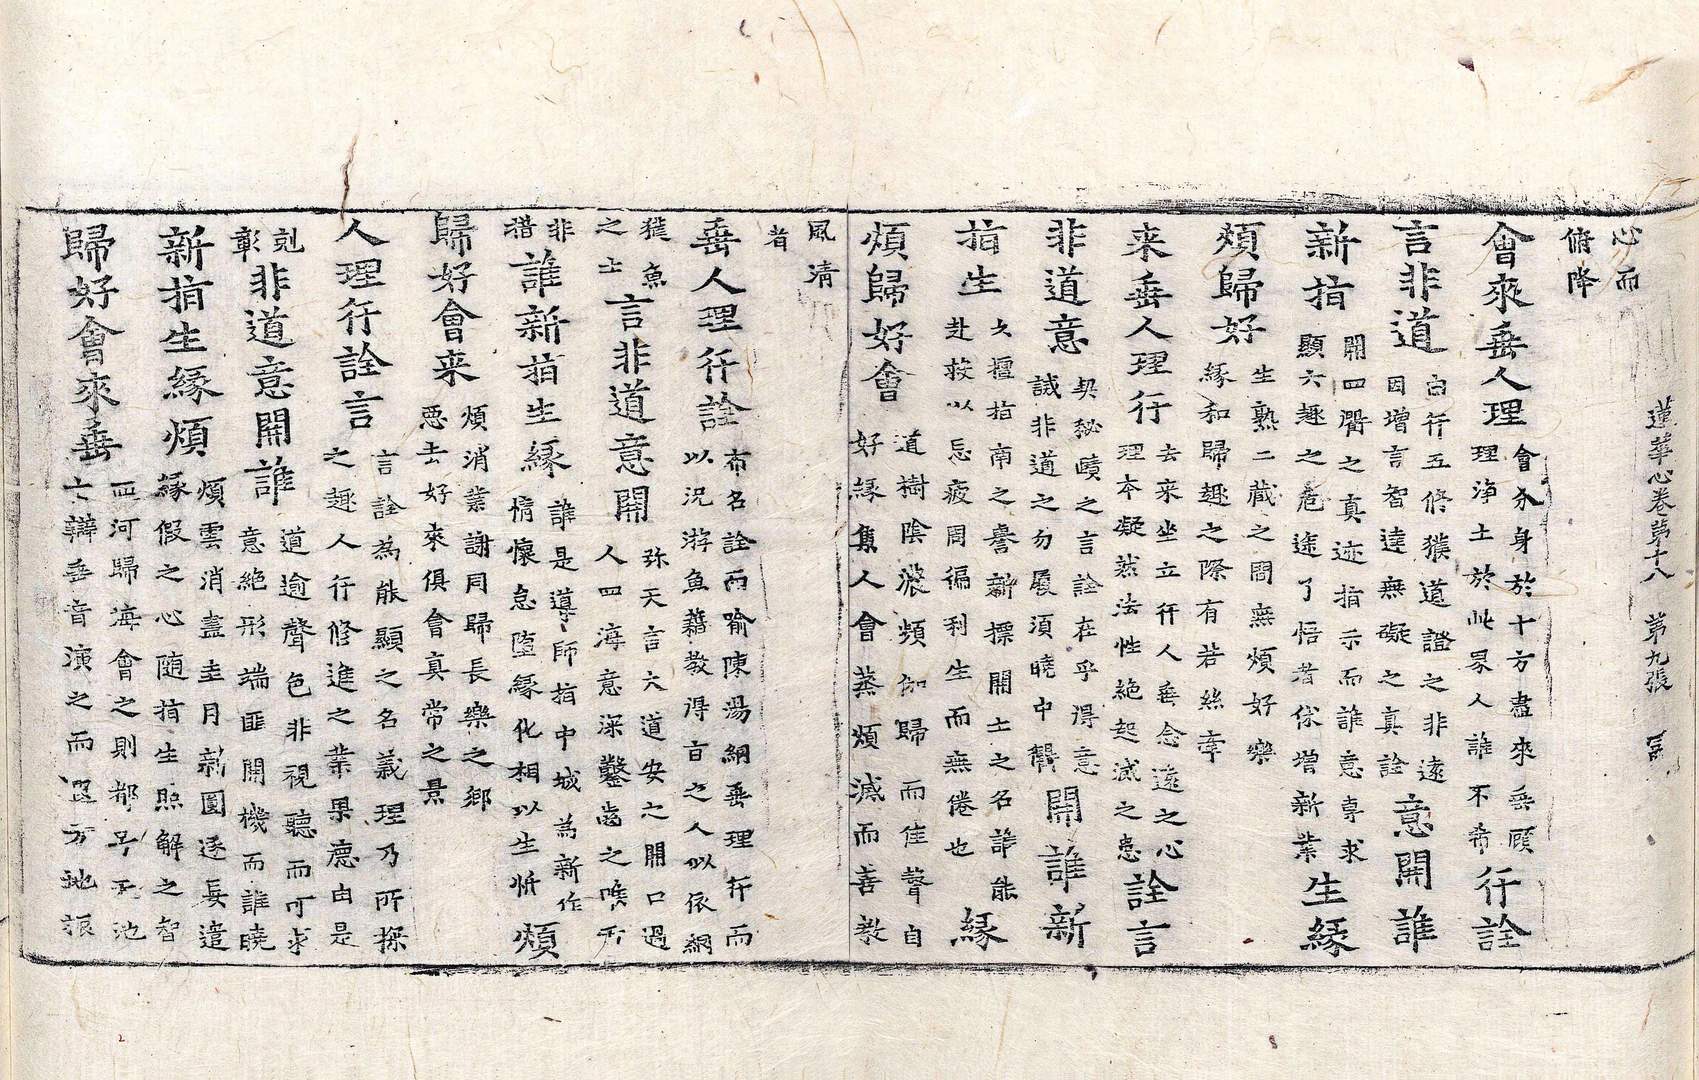 蓮華心卷第十八 第九張
心而
俯降
會來垂人理
會分身於十方盡來垂顧
理淨土於此界人誰不希
行詮
言非道
白行五修獲道證之非遠
因增言智達無礙之真詮
意開誰
新指
開四衢之真迹指示而誰意專求
顯六趣之危途了悟者俅增新業
生緣
煩歸好
生熟二藏之間無煩好樂
緣和歸趣之際有若絲牽
来垂人理行
去来坐立行人垂念遠之心
理本凝然法性絕起滅之患
詮言
非道意
契秘賾之言詮在乎得意
誡非道之勿履須曉中
開誰新
指生
久擅指南之譽新標開士之名誰能
赴救以忘疲周徧利生而無倦也
緣
煩歸好會
道樹陰濃頻伽歸而佳聲自
好緣集人會蒸煩滅而善教
風清
者
垂人理行詮
布名詮而喻陳湯網垂理行而
以況游魚藉教得旨之人似依網
獲魚
之士
言非道意開
弥天言大道安之開口過
人四海意深鑿齒之喙所
非
措
誰新指生緣
誰是導師指中城為新作
情懷怠墮緣化相以生忻
煩
歸好會来
煩消業謝同歸長樂之鄉
惡去好來俱會真常之景
人理行詮言
言詮為能顯之名義理乃所探
之趣人行修進之業果應由是
剋
彰
非道意開誰
道逾聲色非視聽而可求
意絕形端匪開機而誰曉
新指生緣煩
煩雲消盡圭月新圓逐長遠
緣假之心随指生照解之智
歸好會來垂
四河歸海會之則都号天池
七辯垂音演之而遐方地振